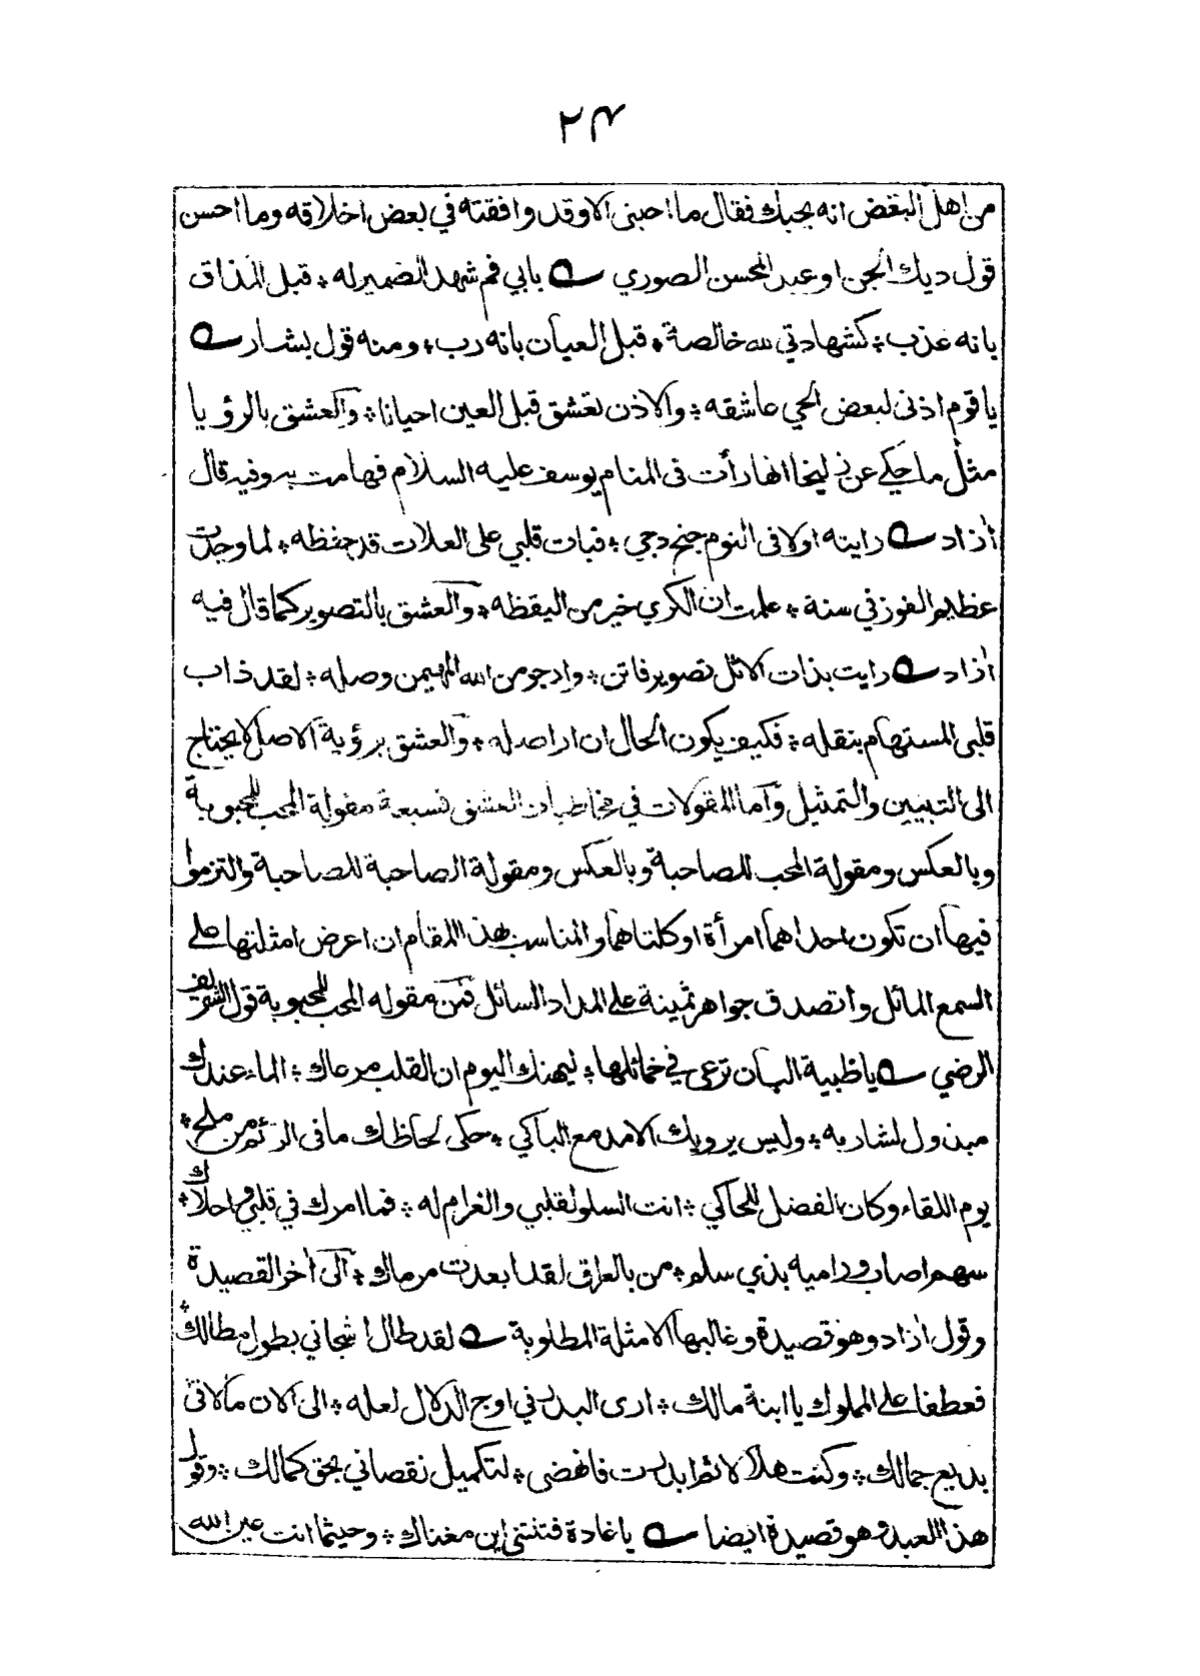 ۲۴
من اهل البغض انه يحبك فقال ما احبنى الا وقد وافقته في بعض اخلاقه وما احسن
قول ديك الجن او عبد المحسن الصوري بابي فم شهد الضمير له ٭ قبل المذاق
بانه عذب ٭ كشهادتي لله خالصة ٭ قبل العيان بانه رب ٭ ومنه قول بشار
يا قوم اذنى لبعض الحي عاشقه ٭ والاذن تعشق قبل العين احيانا ٭ والعشق بالرؤيا
مثل ما حكي عن زليخا انها رأت فى المنام يوسف عليه السلام فهامت به وفيه قال
آزاد رايته اولا فى النوم جنح دجي ٭ فبات قلبي على العلات قد حفظه ٭ لما وجدت
عظيم الفوز في سنة ٭ علمت ان الكري خير من اليقظه ٭ والعشق بالتصوير كما قال فيه
آزاد رايت بذات الاثل تصوير فاتن ٭ وارجو من الله المهيمن وصله ٭ لقد ذاب
قلبى المستهام بنقله ٭ فكيف يكون الحال ان ار اصله ٭ والعشق برؤية الاصل لا يحتاج
الى التبيين والتمثيل وأما المقولات في مخاطبات العشق فسبعة مقولة المحب للمحبوبة
وبالعكس ومقولة المحب للصاحبة وبالعكس ومقولة الصاحبة للصاحبة والتزموا
فيها ان تكون احداهما امرأة او كلتاهما والمناسب بهذا المقام ان اعرض امثلتها على
السمع المائل واتصدق جواهر ثمينة على المداد السائل فمن مقوله المحب للمحبوبة قول الشريف
الرضي يا ظبية البان ترعى في خمائلها ٭ ليهنك اليوم ان القلب مرعاك ٭ الماء عندك
مبذول لشاربه ٭ وليس يرويك الا مدمع الباكي ٭ حكى لحاظك ما فى الرئم من ملح ٭
يوم اللقاء وكان الفضل للحاكي ٭ انت السلو لقلبي والغرام له ٭ فما امرك في قلبي واحلاك ٭
سهم اصاب وراميه بذي سلم ٭ من بالعراق لقد ابعدت مرماك ٭ الى آخر القصيدة
وقول آزاد وهو قصيدة وغالبها الامثلة المطلوبة لقد طال اشجاني بطول مطالك ٭
فعطفا على المملوك يا ابنة مالك ٭ ارى البدر في اوج الدلال لعله ٭ الى الان ما لاقى
بديع جمالك ٭ وكنت هلالا ثم ابدرت فانهضى ٭ لتكميل نقصاني بحق كمالك ٭ وقول
هذا العبد وهو قصيدة ايضا يا غادة فتنتنى اين مغناك ٭ وحيثما انت عين الله